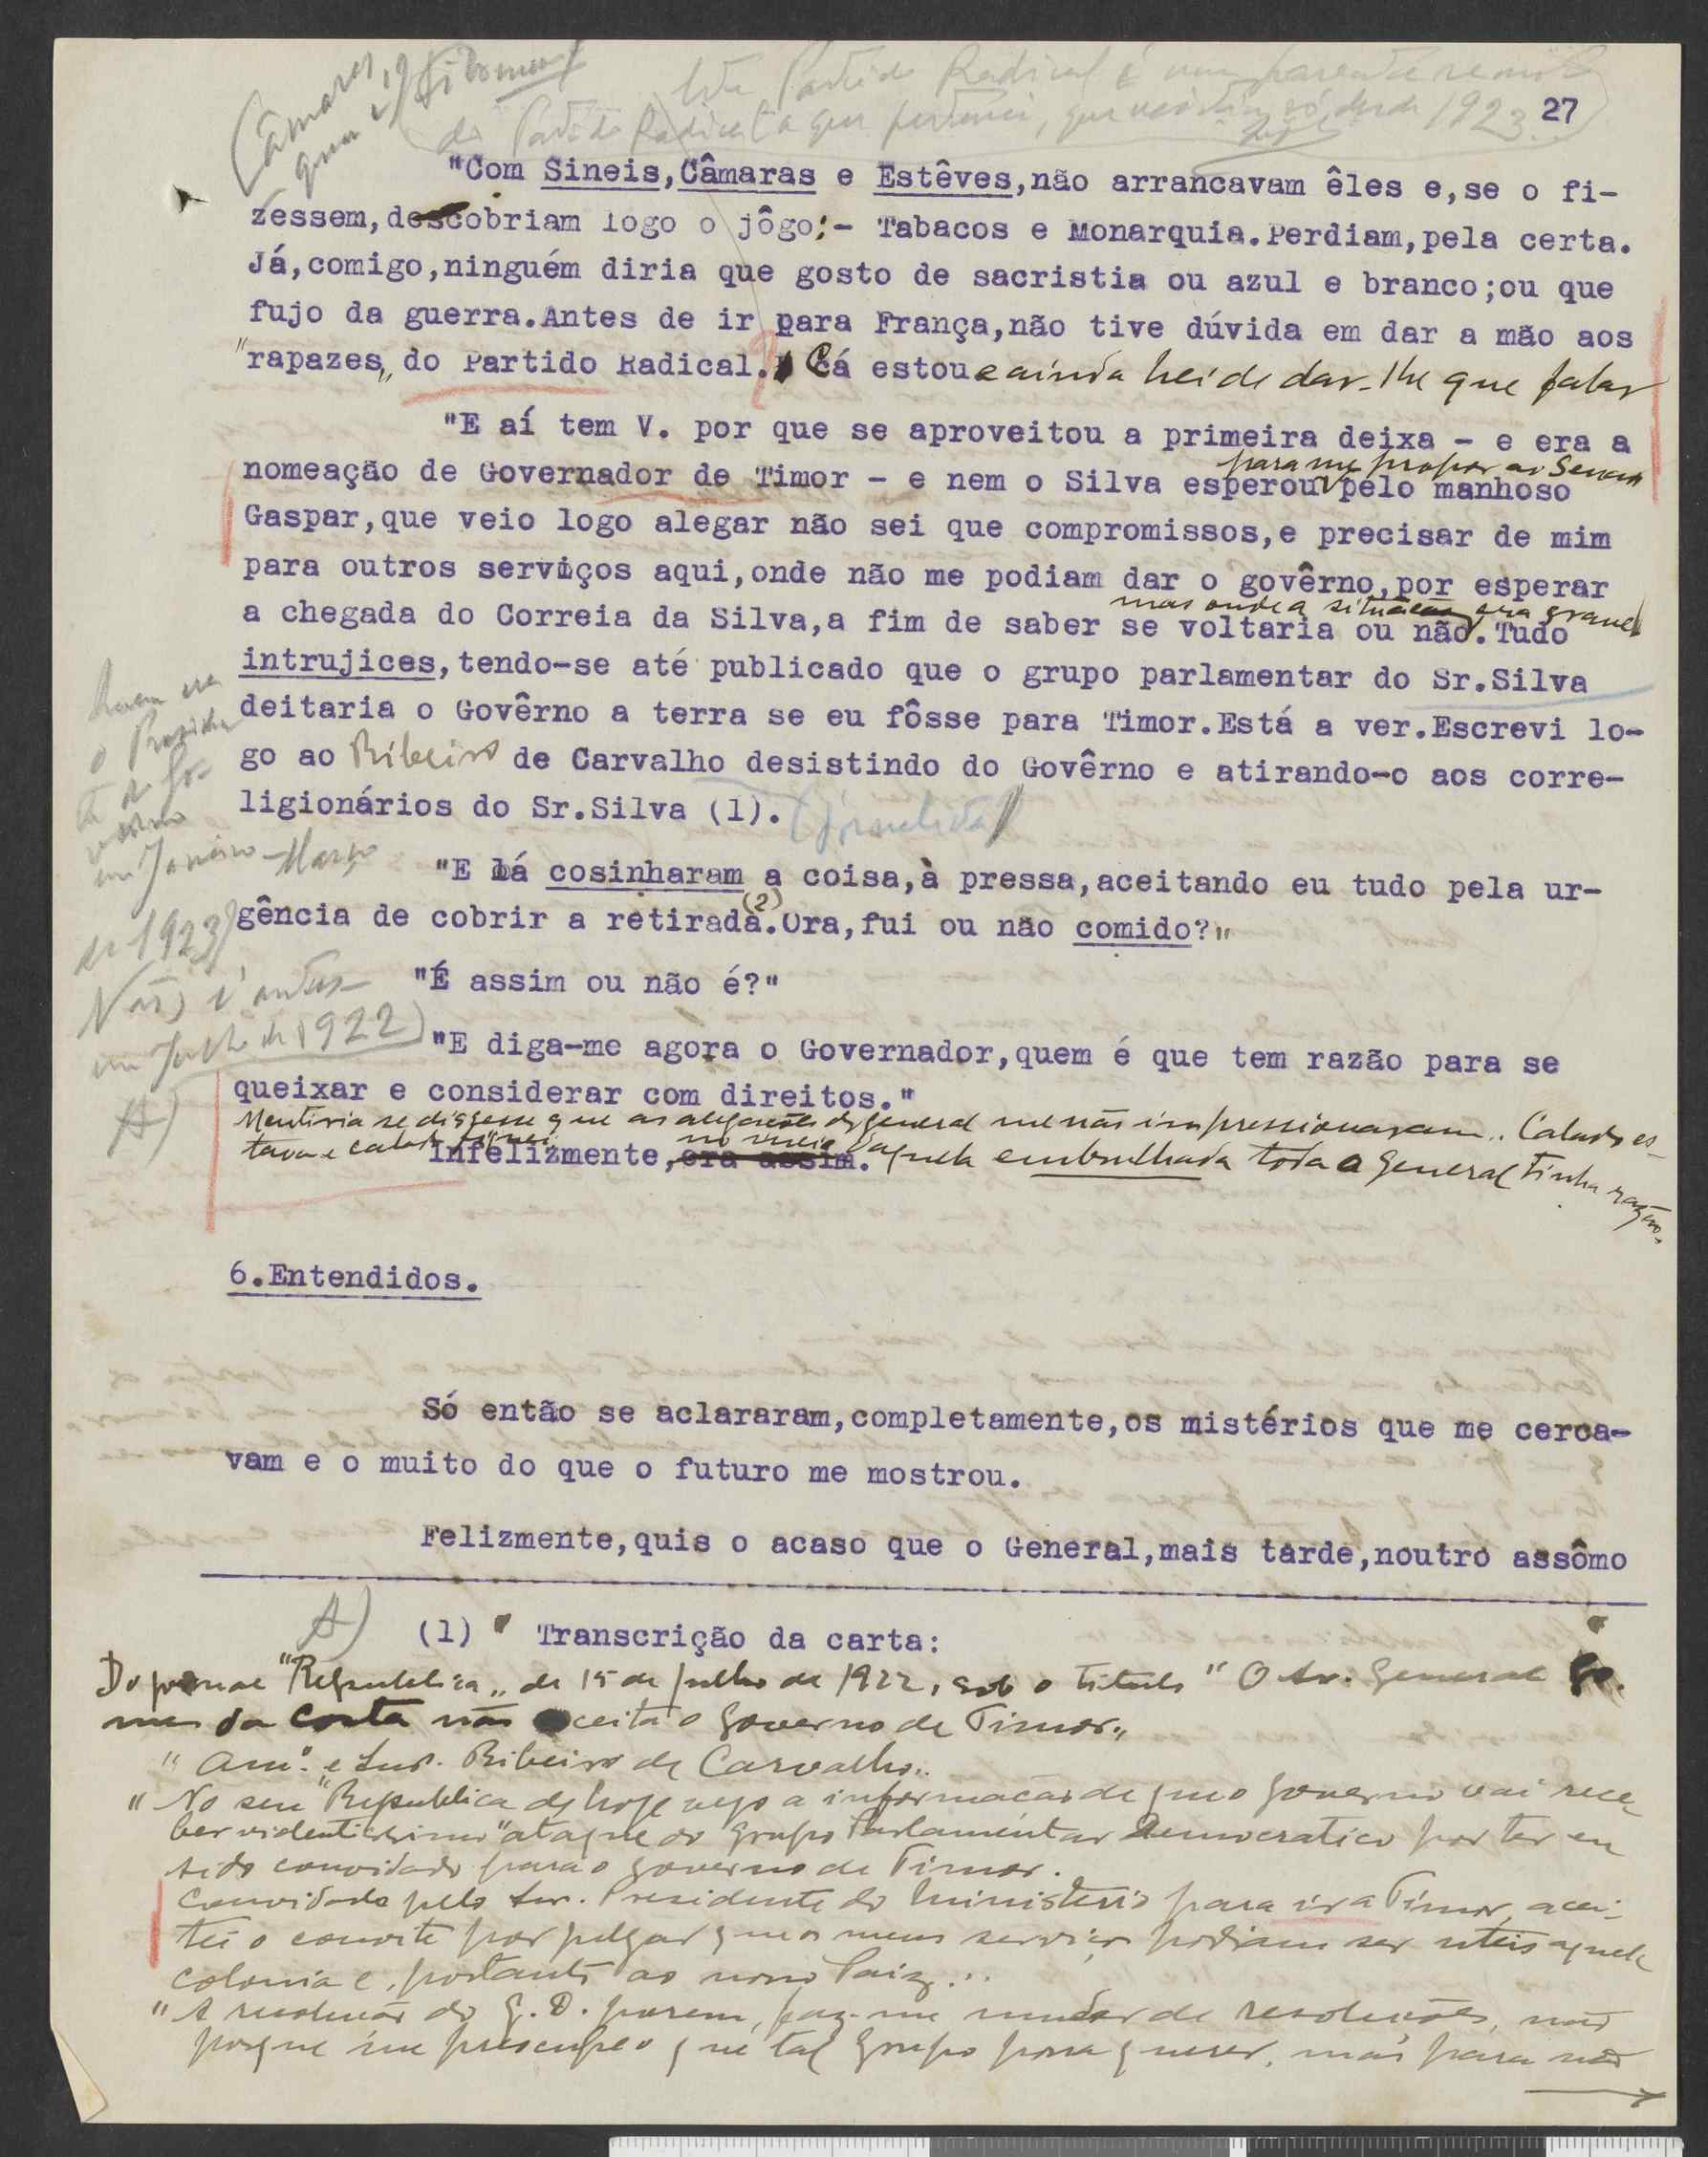 27
(Câmaras,
quem é?
"Com Sineis,Câmaras e Estêves,não arrancavam êles e,se o fi-
zessem,descobriam logo o jôgo:- Tabacos e Monarquia.Perdiam,pela certa.
Já,comigo,ninguém diria que gosto de sacristia ou azul e branco;ou que
fujo da guerra.Antes de ir para França,não tive dúvida em dar a mão aos
"rapazes" do Partido Radical. Cá estou e ainda hei de dar-lhe que falar
"E aí tem V. por que se aproveitou a primeira deixa - e era a
para me propor ao Senado
nomeação de Governador de Timor - e nem o Silva esperou pelo manhoso
Gaspar,que veio logo alegar não sei que compromissos,e precisar de mim
para outros serviços aqui,onde não me podiam dar o govêrno,por esperar
mas onde a situação era grave
a chegada do Correia da Silva,a fim de saber se voltaria ou não.Tudo
intrujices,tendo-se até publicado que o grupo parlamentar do Sr.Silva
deitaria o Govêrno a terra se eu fôsse para Timor.Está a ver.Escrevi lo-
go ao Ribeiro de Carvalho desistindo do Govêrno e atirando-o aos corre-
ligionários do Sr.Silva (1).
Quem era
o Presiden
te de Go-
verno
em Janeiro-Março
de 1923?
Não, é antes
em Julho de 1922)
A)
"E lá cosinharam a coisa,à pressa,aceitando eu tudo pela ur-
gência de cobrir a retirada(2).Ora,fui ou não comido?"
"É assim ou não é?"
"E diga-me agora o Governador,quem é que tem razão para se
queixar e considerar com direitos."
Mentiria se dissesse que as alegações do general me não impressionaram.. Calado es-
tava e calado fiquei.
Infelizmente,era assim. no meio daquela embrulhada toda o general tinha razão.
6.Entendidos.
Só então se aclararam,completamente,os mistérios que me cerca-
vam e o muito do que o futuro me mostrou.
Felizmente,quis o acaso que o General,mais tarde,noutro assômo
A) (1) Transcrição da carta:
Do jornal "Republica" de 15 de julho de 1922, sob o titulo "O Sr. General Go-
mes da Costa não aceita o governo de Timor"
"Am.º e Snr. Ribeiro de Carvalho..
"No seu "Republica de hoje vejo a informação de que o governo vai rece
ber violentissimo "ataque do grupo Parlamentar Democratico por ter eu
sido convidado para o governo de Timor.
Convidado pelo Snr. Presidente do Ministério para ir a Timor, acei-
tei o convite por julgar que os meus serviços podiam ser uteis aquela
colonia e, portanto ao nosso Paiz...
"A resolução do G.D. porem, faz-me mudar de resoluções, não
porque me preocupe o que tal grupo possa querer, mas para não